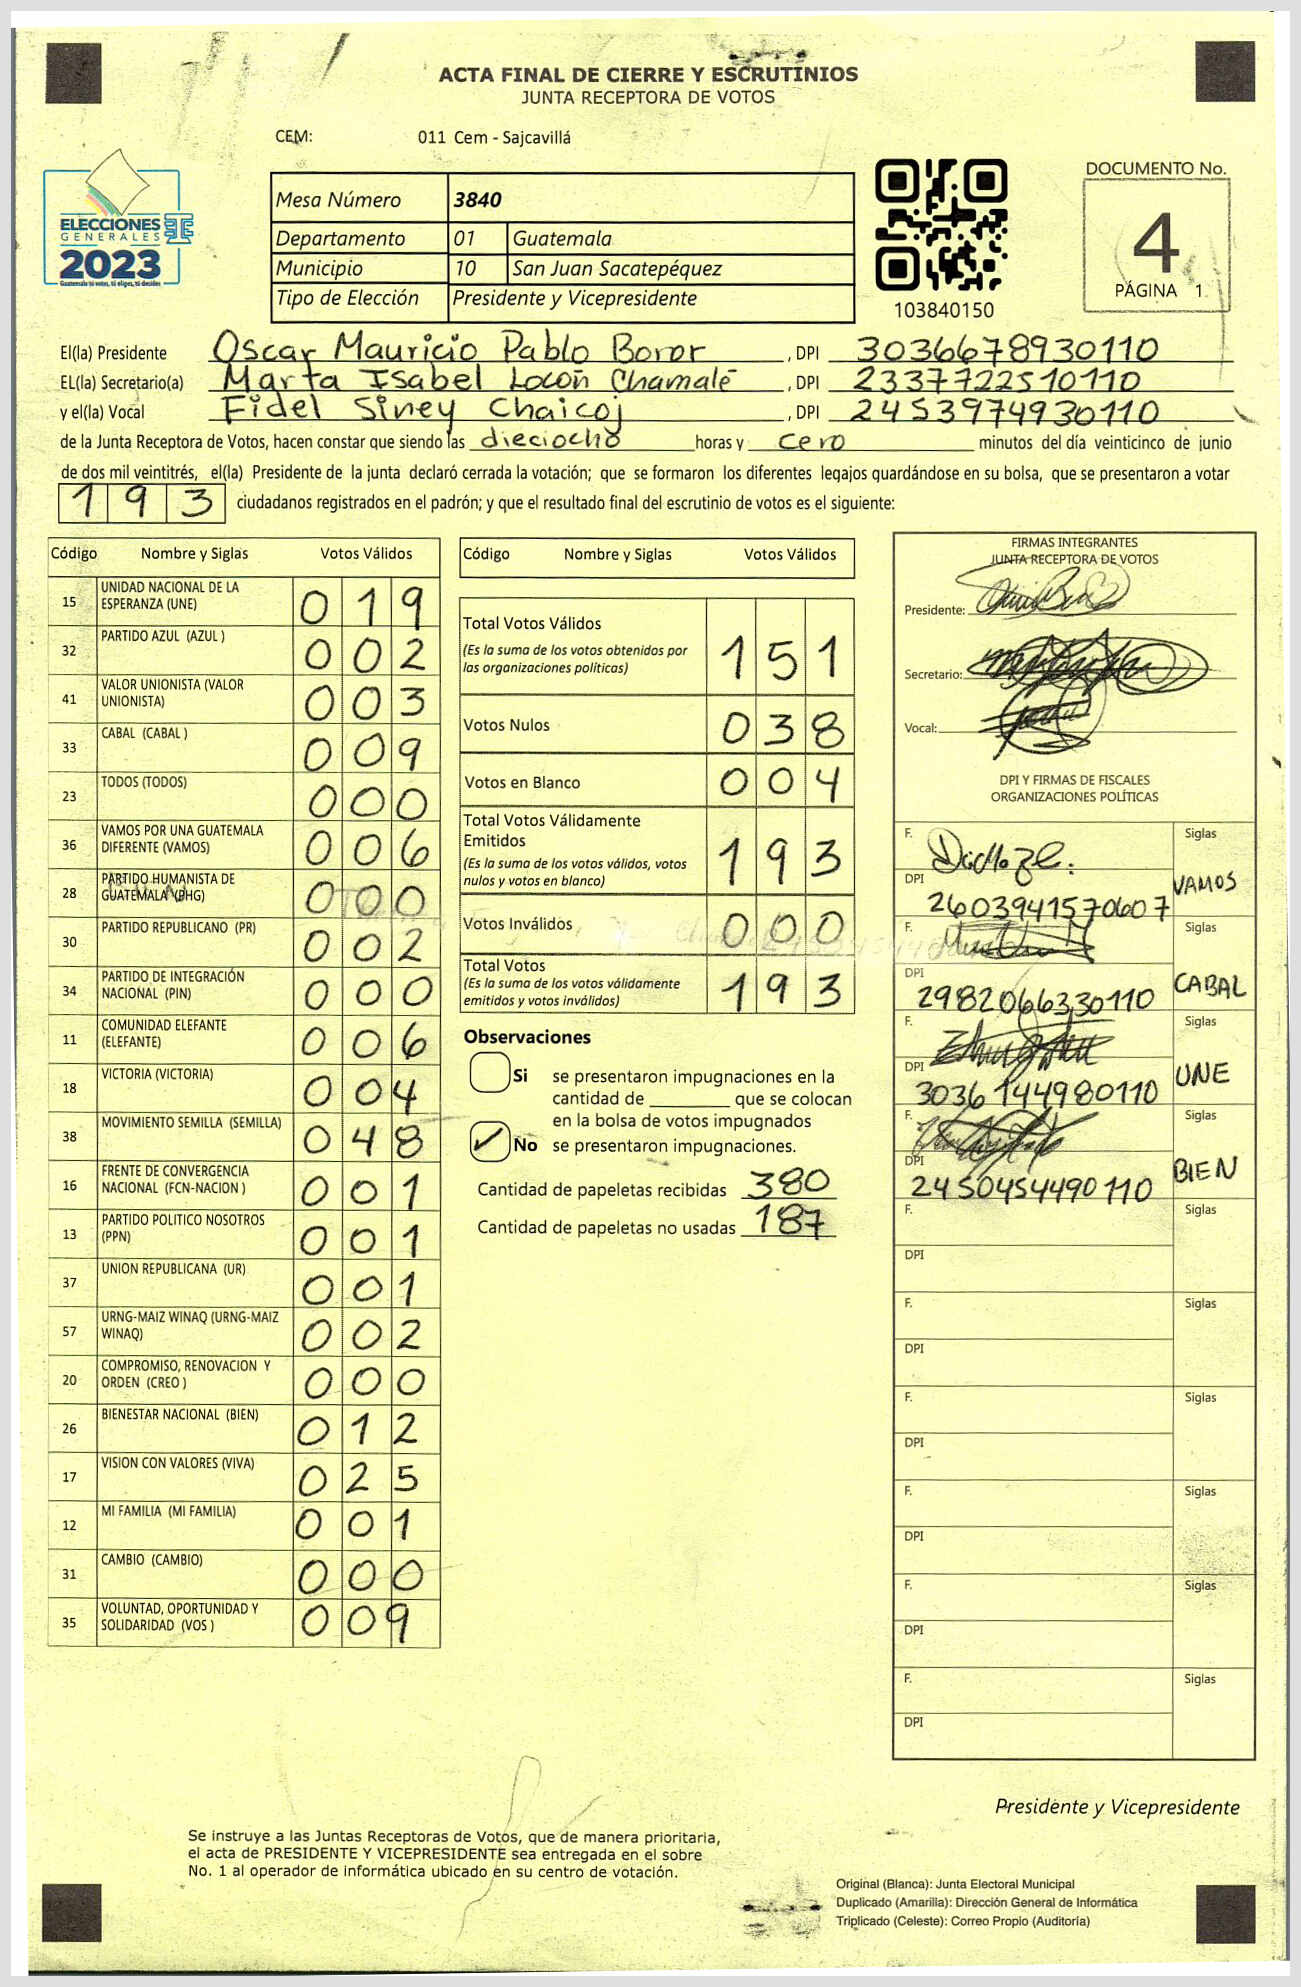 ACTA FINAL DE CIERRE Y ESCRUTINIOS
JUNTA RECEPTORA DE VOTOS
CEM: 011 Cem - Sajcavillá
ELECCIONES
GENERALES
2023
Guatemala tú votas, tú eliges, tú decides
Mesa Número 3840
Departamento 01 Guatemala
Municipio 10 San Juan Sacatepéquez
Tipo de Elección Presidente y Vicepresidente
103840150
DOCUMENTO No.
4
PÁGINA 1
El(la) Presidente Oscar Mauricio Pablo Boror , DPI 3036678930110
EL(la) Secretario(a) Marta Isabel Locón Chamalé , DPI 2337722510110
y el(la) Vocal Fidel Siney Chaicoj , DPI 2453974930110
de la Junta Receptora de Votos, hacen constar que siendo las dieciocho horas y cero minutos del día veinticinco de junio
de dos mil veintitrés, el(la) Presidente de la junta declaró cerrada la votación; que se formaron los diferentes legajos guardándose en su bolsa, que se presentaron a votar
193 ciudadanos registrados en el padrón; y que el resultado final del escrutinio de votos es el siguiente:
Código Nombre y Siglas Votos Válidos
15 UNIDAD NACIONAL DE LA ESPERANZA (UNE) 019
32 PARTIDO AZUL (AZUL ) 002
41 VALOR UNIONISTA (VALOR UNIONISTA) 003
33 CABAL (CABAL ) 009
23 TODOS (TODOS) 000
36 VAMOS POR UNA GUATEMALA DIFERENTE (VAMOS) 006
28 PARTIDO HUMANISTA DE GUATEMALA (PHG) 000
30 PARTIDO REPUBLICANO (PR) 002
34 PARTIDO DE INTEGRACIÓN NACIONAL (PIN) 000
11 COMUNIDAD ELEFANTE (ELEFANTE) 006
18 VICTORIA (VICTORIA) 004
38 MOVIMIENTO SEMILLA (SEMILLA) 048
16 FRENTE DE CONVERGENCIA NACIONAL (FCN-NACION ) 001
13 PARTIDO POLITICO NOSOTROS (PPN) 001
37 UNION REPUBLICANA (UR) 001
57 URNG-MAIZ WINAQ (URNG-MAIZ WINAQ) 002
20 COMPROMISO, RENOVACION Y ORDEN (CREO ) 000
26 BIENESTAR NACIONAL (BIEN) 012
17 VISION CON VALORES (VIVA) 025
12 MI FAMILIA (MI FAMILIA) 001
31 CAMBIO (CAMBIO) 000
35 VOLUNTAD, OPORTUNIDAD Y SOLIDARIDAD (VOS ) 009
Código Nombre y Siglas Votos Válidos
Total Votos Válidos
(Es la suma de los votos obtenidos por
las organizaciones políticas) 151
Votos Nulos 038
Votos en Blanco 004
Total Votos Válidamente
Emitidos
(Es la suma de los votos válidos, votos
nulos y votos en blanco) 193
Votos Inválidos 000
Total Votos
(Es la suma de los votos válidamente
emitidos y votos inválidos) 193
Observaciones
Si se presentaron impugnaciones en la
cantidad de ________ que se colocan
en la bolsa de votos impugnados
No se presentaron impugnaciones.
Cantidad de papeletas recibidas 380
Cantidad de papeletas no usadas 187
FIRMAS INTEGRANTES
JUNTA RECEPTORA DE VOTOS
Presidente:
Secretario:
Vocal:
DPI Y FIRMAS DE FISCALES
ORGANIZACIONES POLÍTICAS
F. Siglas
DPI 2603941570607 VAMOS
F. Siglas
DPI 2982066330110 CABAL
F. Siglas
DPI 3036144980110 UNE
F. Siglas
DPI 2450454490110 BIEN
F. Siglas
DPI
F. Siglas
DPI
F. Siglas
DPI
F. Siglas
DPI
F. Siglas
DPI
F. Siglas
DPI
Presidente y Vicepresidente
Se instruye a las Juntas Receptoras de Votos, que de manera prioritaria,
el acta de PRESIDENTE Y VICEPRESIDENTE sea entregada en el sobre
No. 1 al operador de informática ubicado en su centro de votación.
Original (Blanca): Junta Electoral Municipal
Duplicado (Amarilla): Dirección General de Informática
Triplicado (Celeste): Correo Propio (Auditoría)